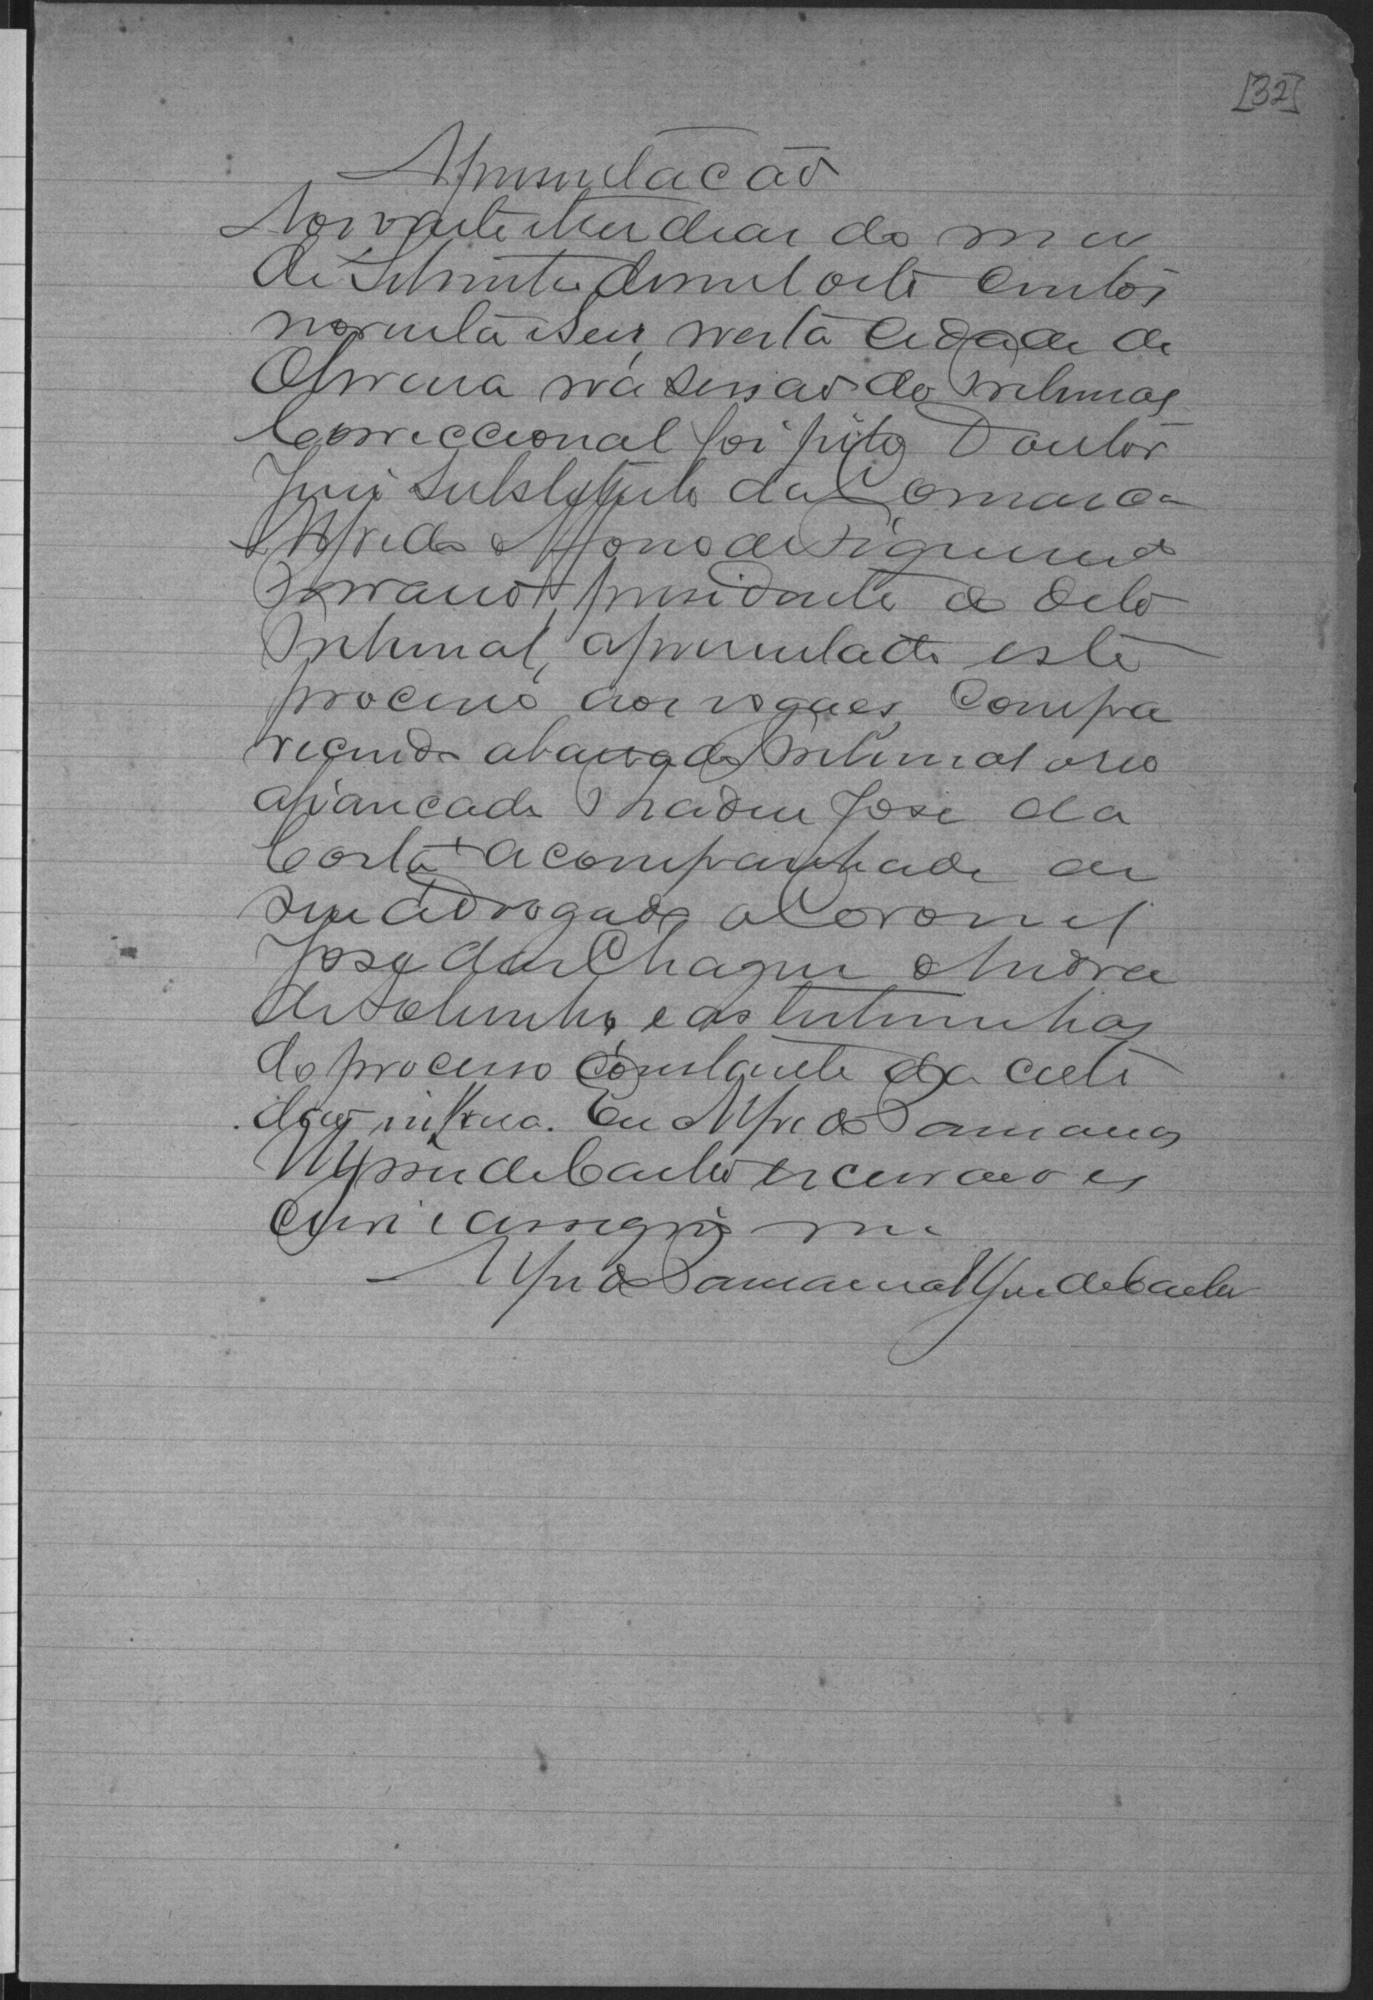 [32]
Apresentacão
Aos vinte e tres dias do mez
de Setembro de mil oito centos
noventa e seis, nesta cidade de
Oliveira na sessão do Tribunal
Correccional foi pelo Doutor
Juiz Substituto da Comarca
Alfredo Affonso de Figueiredo
presidente do dito
Tribunal, apresentado este
processo aos vogaes, compa
recendo a barra do Tribunal o reo
afiancado Thadeu José da
Costa acompanhado de
seu advogado o Coronel
José das Chagas Andra
de Sobrinho, e as testemunhas
do processo constante da certi
dão infra. Eu Alfredo
de Castro escrivão es
crevi e assigno me
Alfredo de Castro